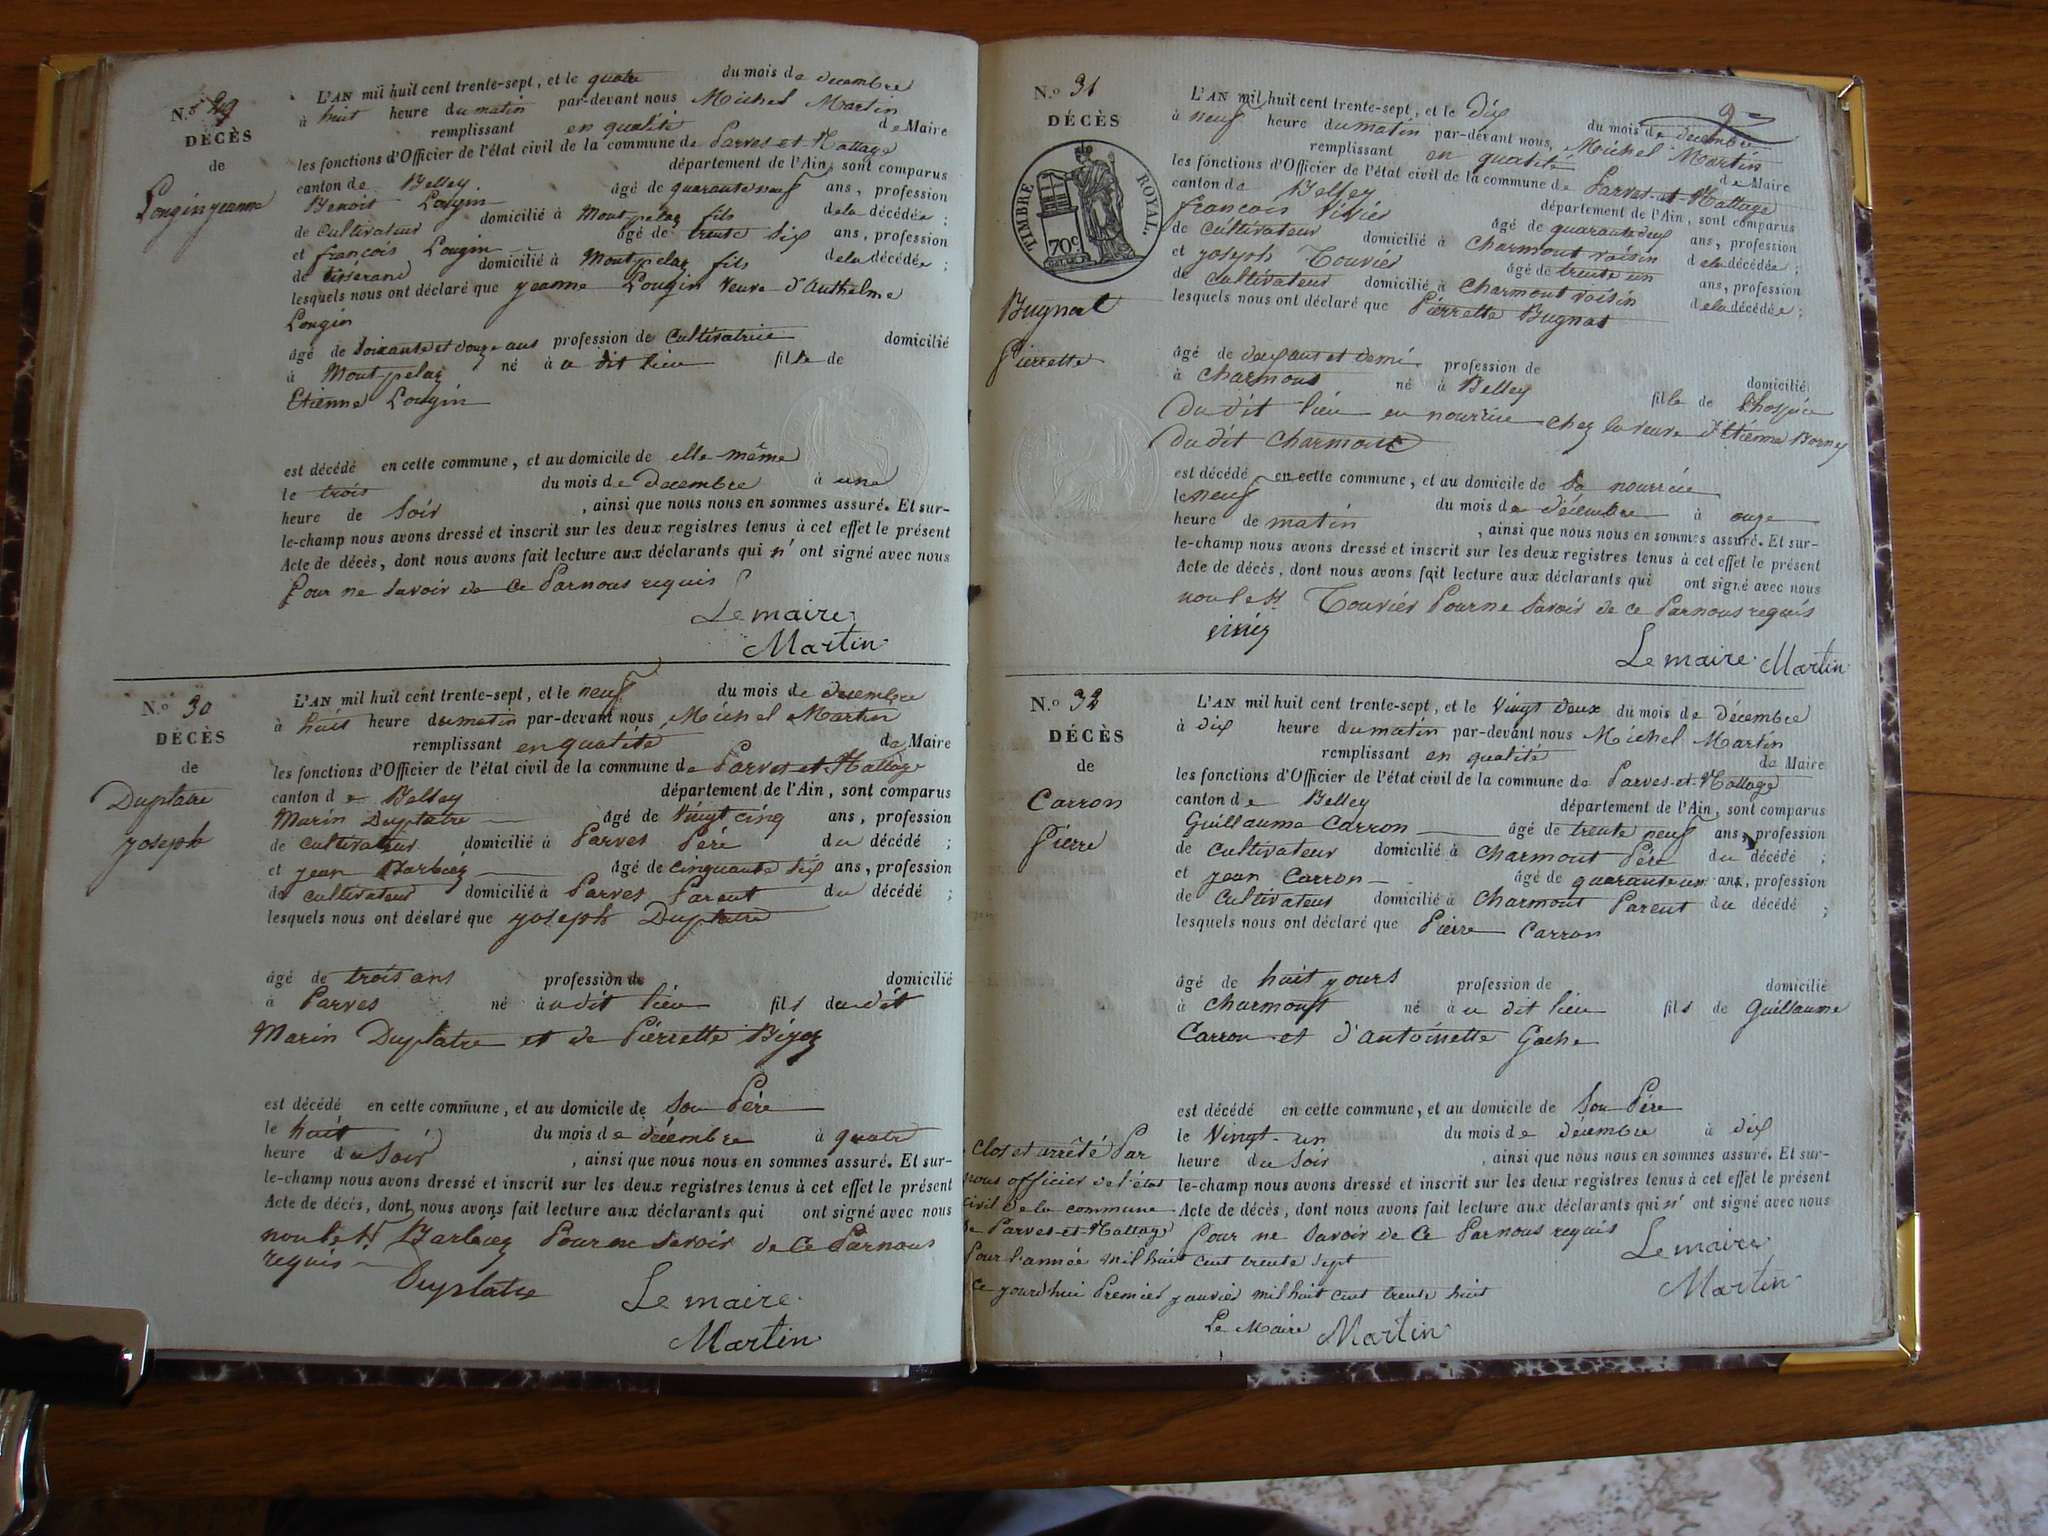 N.º 29
DÉCÈS
de
Longin yeanne
L'AN mil huit cent trente-sept, et le quatre du mois de decembre
à huit heure du matin par-devant nous Michel Martin
remplissant en qualité de Maire
les fonctions d'Officier de l'état civil de la commune de Parves-et-Nattage
canton de Belley département de l'Ain, sont comparus
Benoit Longin âgé de quarante neuf ans, profession
de Cultivateur domicilié à Montpelaz fils de la décédée ;
et françois Longin âgé de trente six ans, profession
de tisserand domicilié à Montpelaz fils de la décédée ;
lesquels nous ont déclaré que yeanne Longin veuve d'Anthelme
Longin
âgé de soixante et douze ans profession de Cultivatrice domicilié
à Montpelaz né à u dit lieu fille de
Etienne Longin
est décédé en cette commune, et au domicile de elle même
le trois du mois de Decembre à une
heure de soir , ainsi que nous nous en sommes assuré. Et sur-
le-champ nous avons dressé et inscrit sur les deux registres tenus à cet effet le présent
Acte de décès, dont nous avons fait lecture aux déclarants qui n' ont signé avec nous
Pour ne savoir de ce Par nous requis
Le maire
Martin
N.º 30
DÉCÈS
de
Duplatre
yoseph
L'AN mil huit cent trente-sept, et le neuf du mois de decembre
à huit heure du matin par-devant nous Michel Martin
remplissant en qualité de Maire
les fonctions d'Officier de l'état civil de la commune de Parves-et-Nattage
canton de Belley département de l'Ain, sont comparus
Marin Duplatre âgé de vingt cinq ans, profession
de cultivateur domicilié à Parves Pére du décédé ;
et yean Barbiez âgé de cinquante six ans, profession
de cultivateur domicilié à Parves Parent du décédé ;
lesquels nous ont déclaré que yoseph Duplatre
âgé de trois ans profession de domicilié
à Parves né à u dit lieu fils du dit
Marin Duplatre et de Piérrette
est décédé en cette commune, et au domicile de Son Pére
le huit du mois de décembre à quatre
heure du soir , ainsi que nous nous en sommes assuré. Et sur-
le-champ nous avons dressé et inscrit sur les deux registres tenus à cet effet le présent
Acte de décès, dont nous avons fait lecture aux déclarants qui ont signé avec nous
non led.t Barbiez Pour ne savoir de ce Par nous
requis
Duplatre
Le maire
Martin
9
N.º 31
DÉCÈS
TIMBRE ROYAL.
70c
Bugnat
Pierrette
L'AN mil huit cent trente-sept, et le dix du mois de décembre
à neuf heure du matin par-devant nous, Michel Martin
remplissant en qualité de Maire
les fonctions d'Officier de l'état civil de la commune de Parves-et-Nattage
canton de Belley département de l'Ain, sont comparus
françois âgé de quarante ans, profession
de cultivateur domicilié à Charmont voisin de la décédée ;
et yoseph Touvier âgé de trente un ans, profession
de cultivateur domicilié à Charmont voisin de la décédée ;
lesquels nous ont déclaré que Pierrette Bugnat
âgé de et demi profession de domicilié
à Charmont né à Belley fille de l'hospice
du dit lieu en nourrice chez la veuve d'Etienne
du dit Charmont
est décédé en cette commune, et au domicile de sa nourrice
le neuf du mois de décembre à onze
heure de matin , ainsi que nous nous en sommes assuré. Et sur-
le-champ nous avons dressé et inscrit sur les deux registres tenus à cet effet le présent
Acte de décès, dont nous avons fait lecture aux déclarants qui ont signé avec nous
non led.t Touviér Pour ne savoir de ce Par nous requis
Le maire Martin
N.º 32
DÉCÈS
de
Carron
Pierre
L'AN mil huit cent trente-sept, et le vingt deux du mois de décembre
à dix heure du matin par-devant nous Michel Martin
remplissant en qualité de Maire
les fonctions d'Officier de l'état civil de la commune de Parves-et-Nattage
canton de Belley département de l'Ain, sont comparus
Guillaume Carron âgé de trente neuf ans, profession
de cultivateur domicilié à Charmont Pére du décédé ;
et yean Carron âgé de quarante un ans, profession
de Cultivateur domicilié à Charmont Parent du décédé ;
lesquels nous ont déclaré que Pierre Carron
âgé de huit yours profession de domicilié
à Charmont né à u dit lieu fils de Guillaume
Carron et d'antoinette Gache
est décédé en cette commune, et au domicile de Son Pére
le Vingt-un du mois de décembre à dix
heure du soir , ainsi que nous nous en sommes assuré. Et sur-
le-champ nous avons dressé et inscrit sur les deux registres tenus à cet effet le présent
Acte de décès, dont nous avons fait lecture aux déclarants qui n' ont signé avec nous
Pour ne savoir de ce Par nous requis
Le maire
Martin
Clos et arrêté Par
nous officier de l'état
civil de la commune
de Parves-et-Nattage
Pour l'année mil huit cent trente sept
ce yourd'hui Premier yanvier mil huit cent trente huit
Le Maire Martin